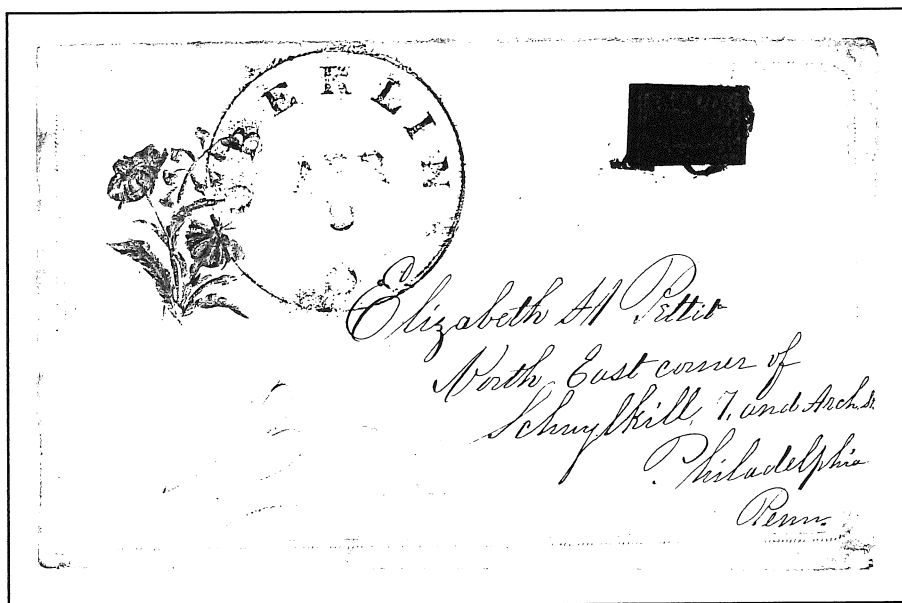 BERLIN
Elizabeth Pettit
North East corner of
Schuylkill, 7, and Arch. St.
Philadelphia
Penn.